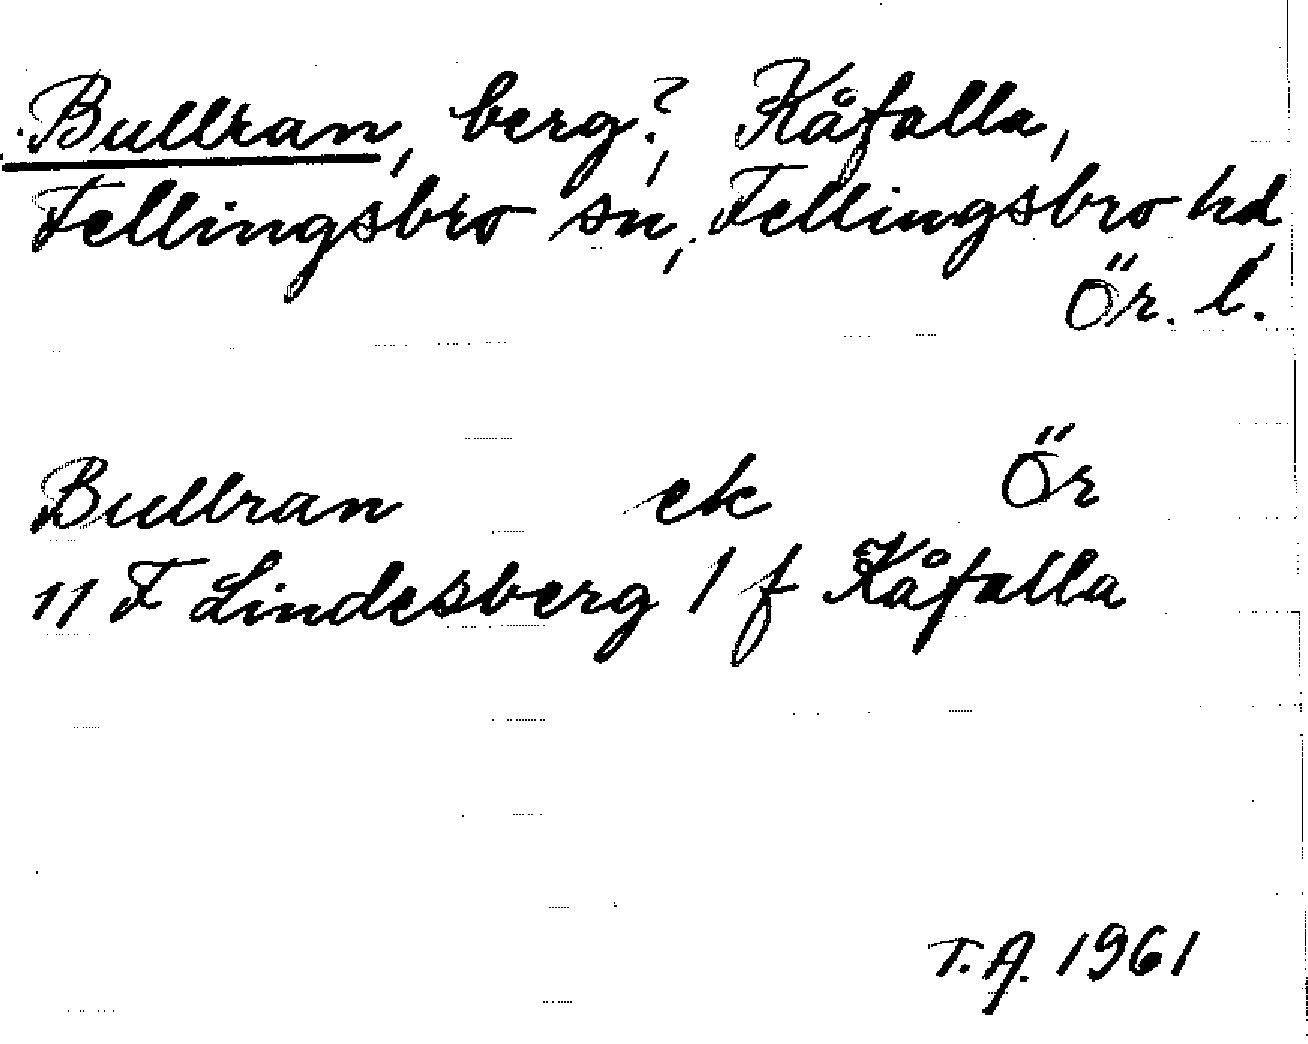 Bullran, berg?, Kåfalla,
Fellingsbro sn, Fellingsbro hd,
Ör. l.
Bullran ek Ör
11 F Lindesberg 1 f Kåfalla
T.A. 1961